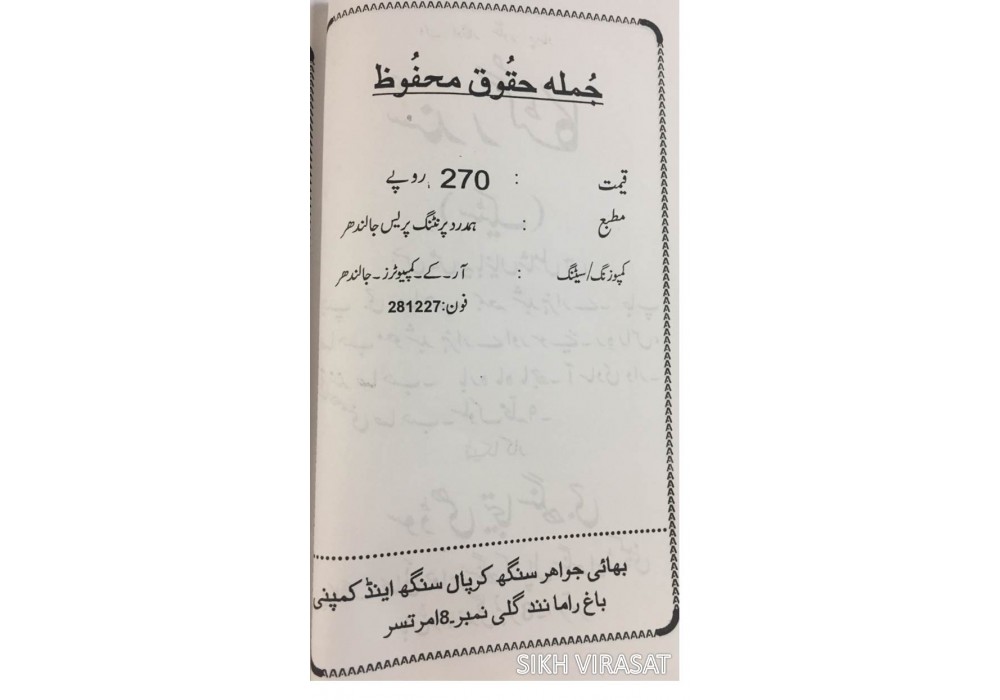 جُملہ حقُوق محفُوظ
قیمت : 270 روپے
مطبع : ہمدرد پرنٹنگ پریس جالندھر
کمپوزنگ/سیٹنگ : آر۔کے۔کمپیوٹرز۔جالندھر
فون:281227
بھائی جواھر سنگھ کرپال سنگھ اینڈ کمپنی
باغ راما نند گلی نمبر۔8امرتسر
SIKH VIRASAT